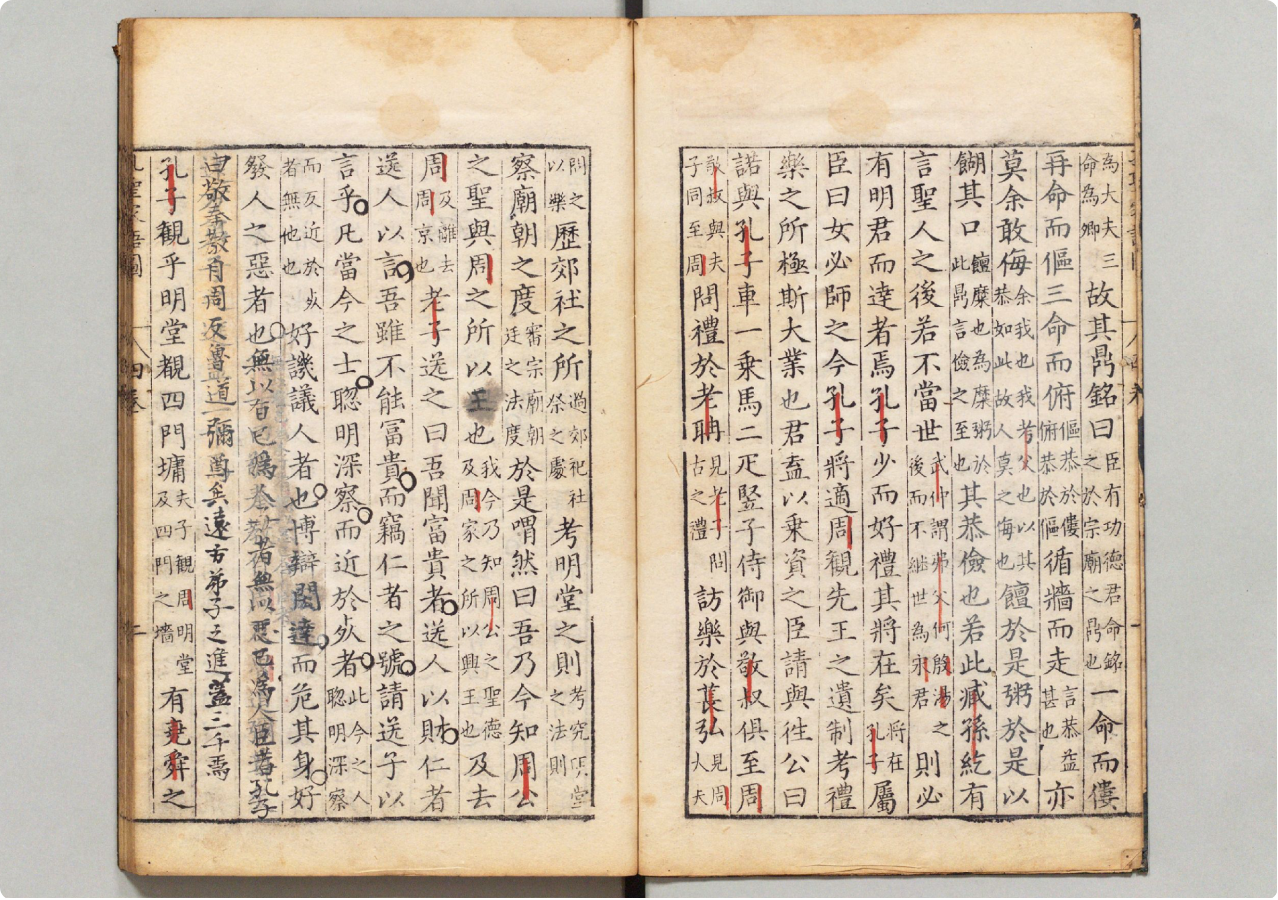 為大夫三命為卿故其鼎銘曰臣有功德君命銘之於宗廟之鼎也一命而僂
再命而傴三命而俯傴恭於僂俯恭於傴循牆而走言恭益甚也亦
莫余敢侮余我也我考父也以其恭如此故人莫之侮也饘於是粥於是以
餬其口饘糜也為糜粥於此鼎言儉之至也其恭儉也若此臧孫紇有
言聖人之後若不當世武仲謂弗父何殷湯之後而不継世為宋君則必
有明君而達者焉孔子少而好禮其將在矣將在孔子屬
臣曰女必師之今孔子將適周觀先王之遺制考禮
樂之所極斯大業也君盍以乗資之臣請與徃公曰
諾與孔子車一乗馬二疋竪子侍御與敬叔俱至周
敬叔與夫子同至周問禮於老聃見老子問古之禮訪樂於萇弘見周大夫
問之以樂歷郊社之所過郊祀社祭之處考明堂之則考究明堂之法則
察廟朝之度審宗廟朝廷之法度於是喟然曰吾乃今知周公
之聖與周之所以王也我今乃知周公之聖德及周家之所以興王也及去
周及離去周京也老子送之曰吾聞富貴者送人以財仁者
送人以言吾雖不能富貴而竊仁者之號請送子以
言乎凡當今之士聰明深察而近於死者此今之人聰明深察
而反近於死者無他也好譏議人者也博辯閎達而危其身好
發人之惡者也無以有已為者無以惡已為人臣者孔子
曰敬奉教自周反魯道彌尊矣遠方弟子之進蓋三千焉
孔子觀乎明堂覩四門墉夫子觀周明堂及四門之墻有堯舜之
四卷
二